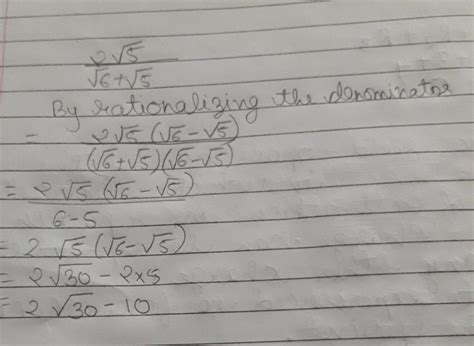 2√5
√6+√5
By rationalizing the denominator
= 2√5 (√6 − √5)
(√6+√5)(√6−√5)
= 2 √5 (√6 − √5)
6 − 5
= 2 √5 (√6 − √5)
= 2√30 − 2×5
= 2√30 − 10